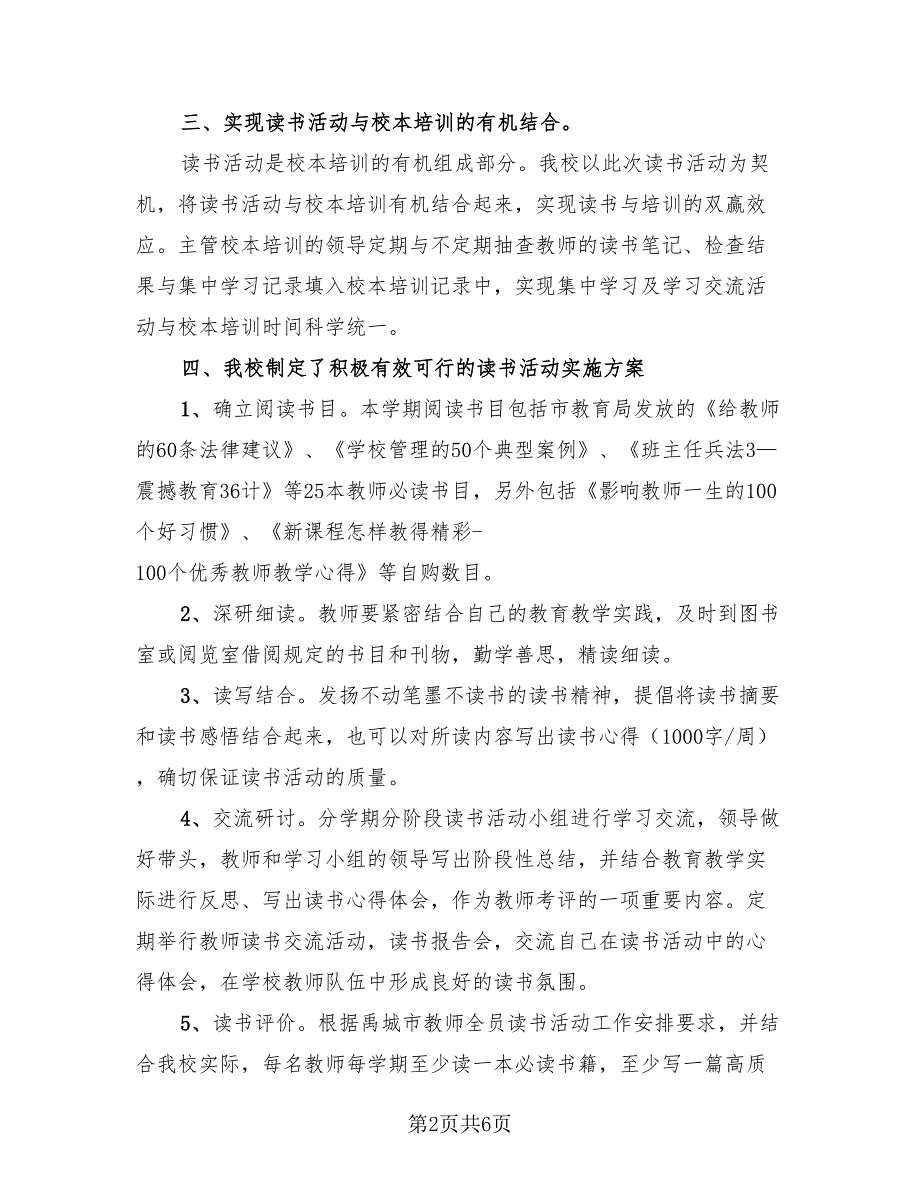 三、实现读书活动与校本培训的有机结合。
读书活动是校本培训的有机组成部分。我校以此次读书活动为契
机，将读书活动与校本培训有机结合起来，实现读书与培训的双赢效
应。主管校本培训的领导定期与不定期抽查教师的读书笔记、检查结
果与集中学习记录填入校本培训记录中，实现集中学习及学习交流活
动与校本培训时间科学统一。
四、我校制定了积极有效可行的读书活动实施方案
1、确立阅读书目。本学期阅读书目包括市教育局发放的《给教师
的60条法律建议》、《学校管理的50个典型案例》、《班主任兵法3—
震撼教育36计》等25本教师必读书目，另外包括《影响教师一生的100
个好习惯》、《新课程怎样教得精彩-
100个优秀教师教学心得》等自购数目。
2、深研细读。教师要紧密结合自己的教育教学实践，及时到图书
室或阅览室借阅规定的书目和刊物，勤学善思，精读细读。
3、读写结合。发扬不动笔墨不读书的读书精神，提倡将读书摘要
和读书感悟结合起来，也可以对所读内容写出读书心得（1000字/周）
，确切保证读书活动的质量。
4、交流研讨。分学期分阶段读书活动小组进行学习交流，领导做
好带头，教师和学习小组的领导写出阶段性总结，并结合教育教学实
际进行反思、写出读书心得体会，作为教师考评的一项重要内容。定
期举行教师读书交流活动，读书报告会，交流自己在读书活动中的心
得体会，在学校教师队伍中形成良好的读书氛围。
5、读书评价。根据禹城市教师全员读书活动工作安排要求，并结
合我校实际，每名教师每学期至少读一本必读书籍，至少写一篇高质
第2页共6页